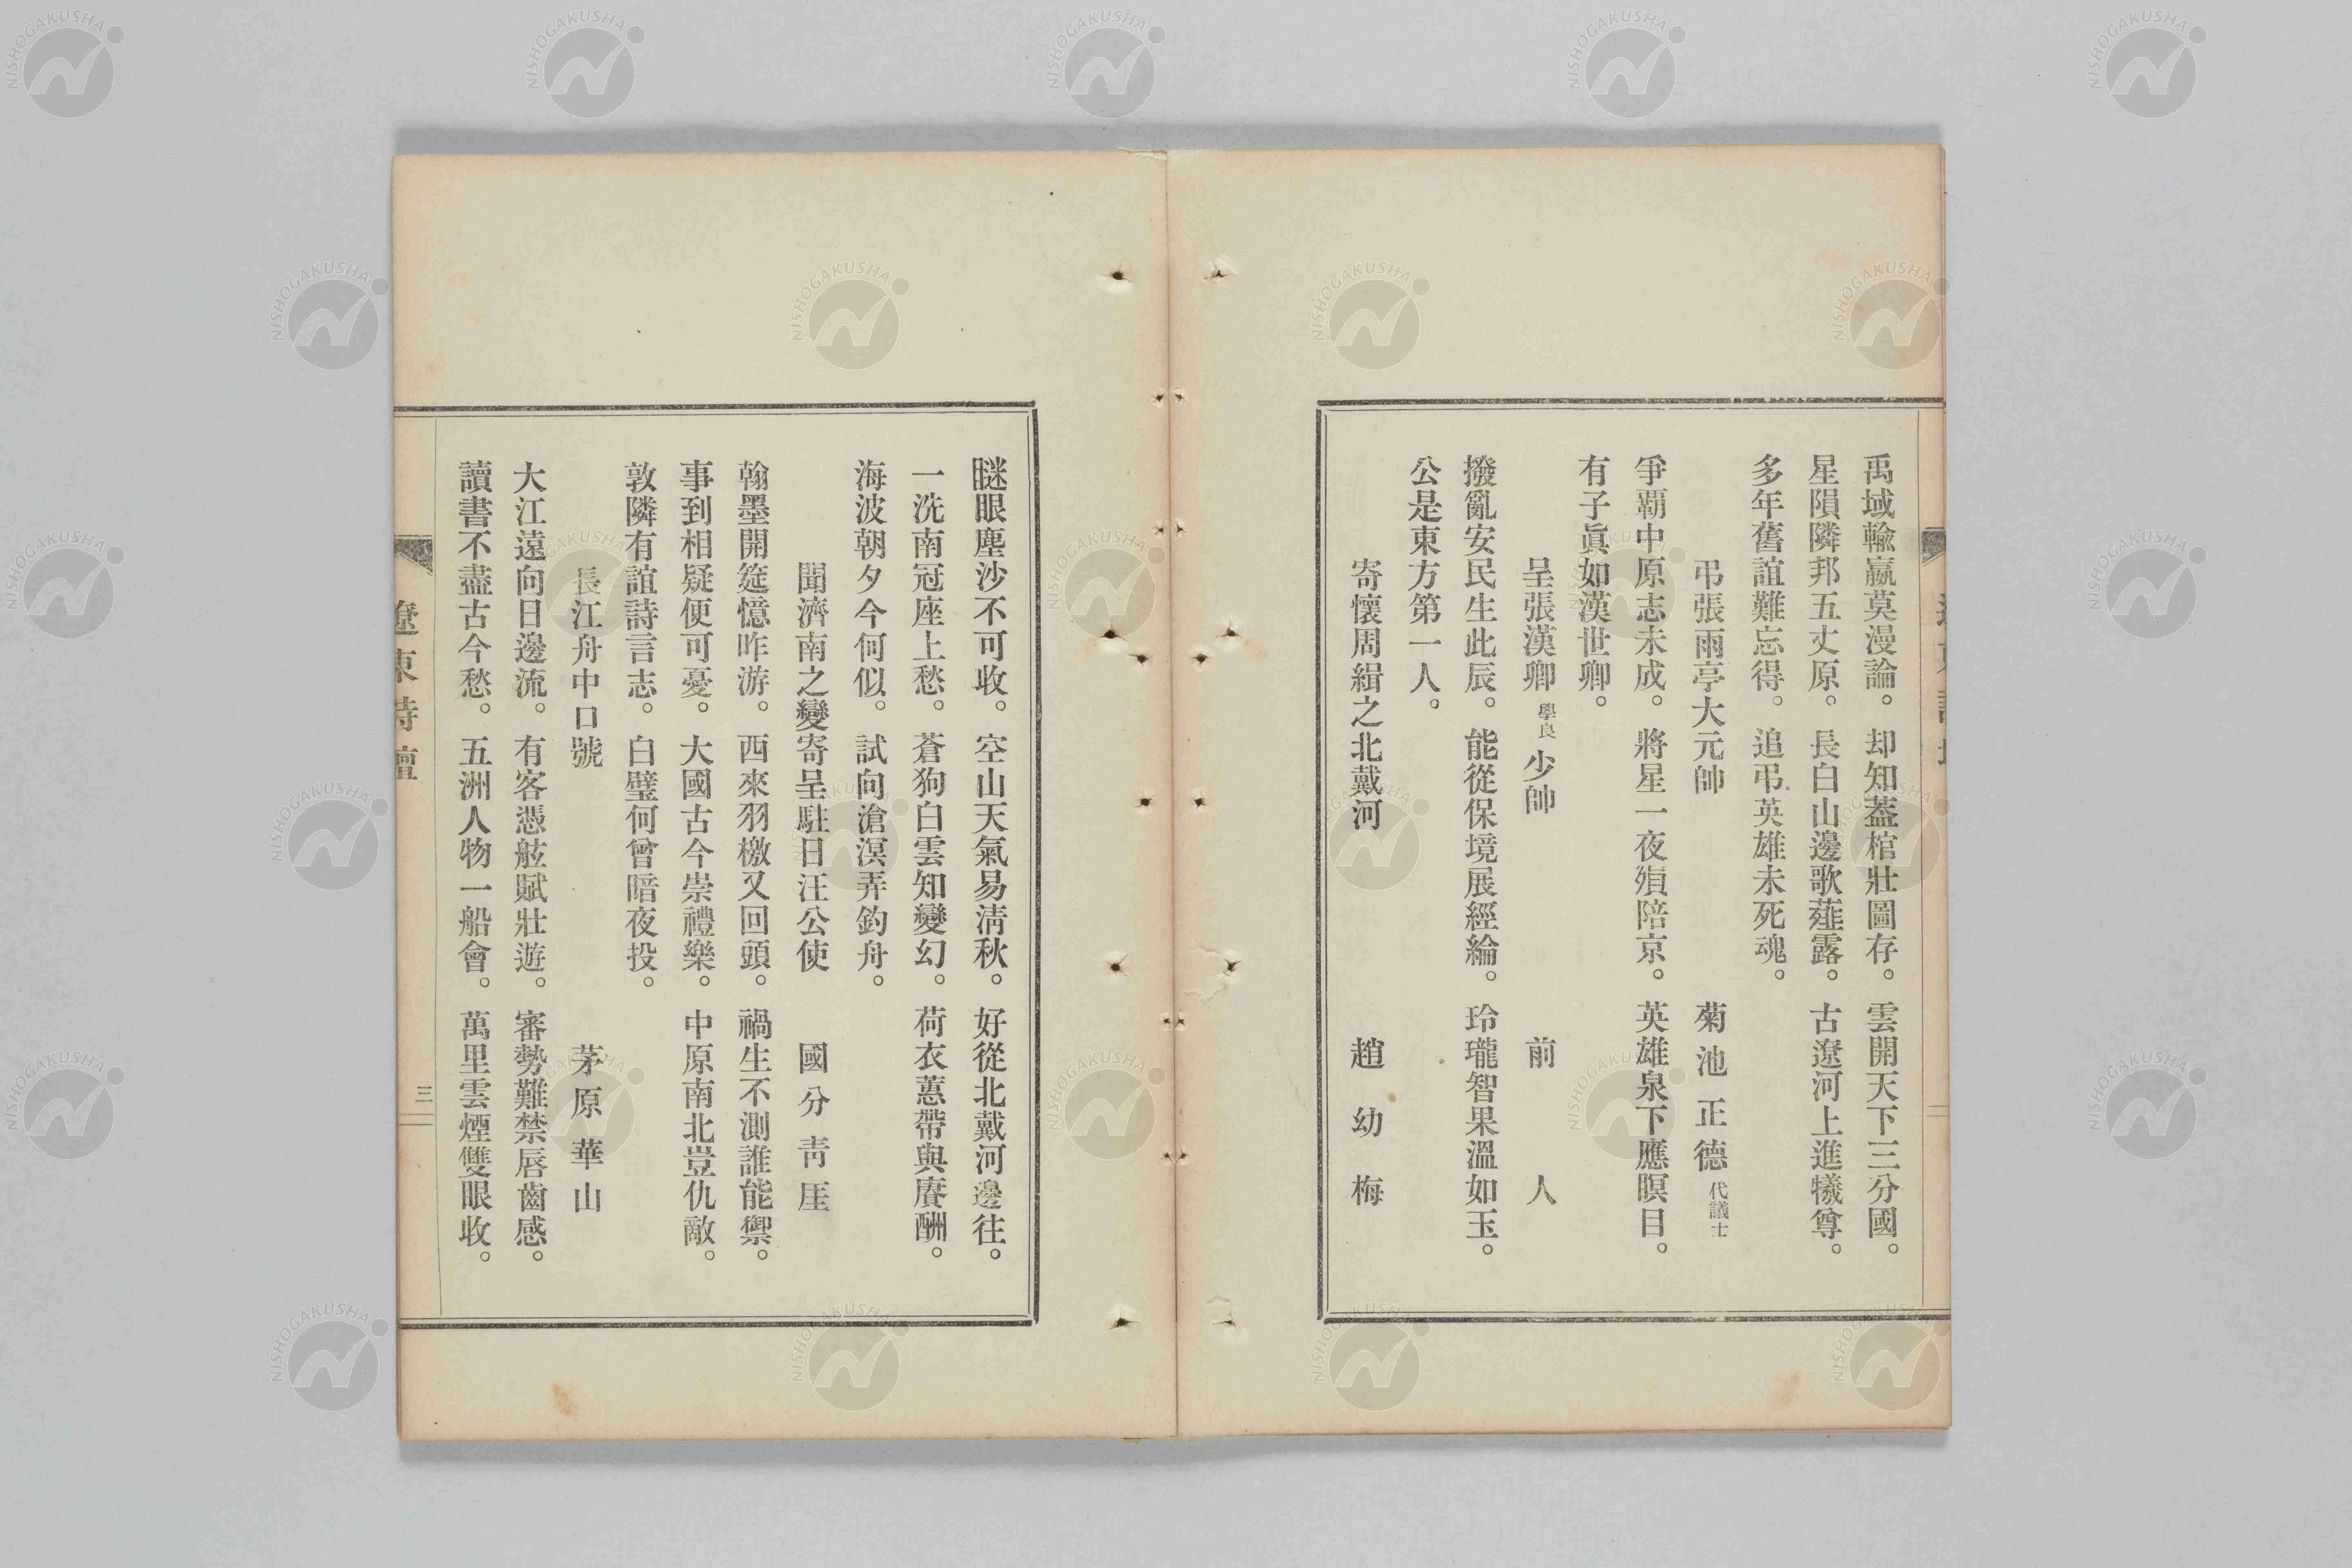 禹域輸贏莫漫論。却知蓋棺壯圖存。雲開天下三分國。
星隕隣邦五丈原。長白山邊歌薤露。古遼河上進犧尊。
多年舊誼難忘得。追弔英雄未死魂。
弔張雨亭大元帥 菊池正德 代議士
爭覇中原志未成。將星一夜殞陪京。英雄泉下應瞑目。
有子眞如漢世卿。
呈張漢卿 學良 少帥 前人
撥亂安民生此辰。能從保境展經綸。玲瓏智果溫如玉。
公是東方第一人。
寄懷周緝之北戴河 趙幼梅
瞇眼塵沙不可收。空山天氣易淸秋。好從北戴河邊往。
一洗南冠座上愁。蒼狗白雲知變幻。荷衣蕙帶與賡酬。
海波朝夕今何似。試向滄溟弄釣舟。
聞濟南之變寄呈駐日汪公使 國分靑厓
翰墨開筵憶昨游。西來羽檄又回頭。禍生不測誰能禦。
事到相疑便可憂。大國古今崇禮樂。中原南北豈仇敵。
敦隣有誼詩言志。白璧何曾暗夜投。
長江舟中口號 茅原華山
大江遠向日邊流。有客憑舷賦壯遊。審勢難禁唇齒感。
讀書不盡古今愁。五洲人物一船會。萬里雲煙雙眼收。
遼東詩壇
三
NISHOGAKUSHA